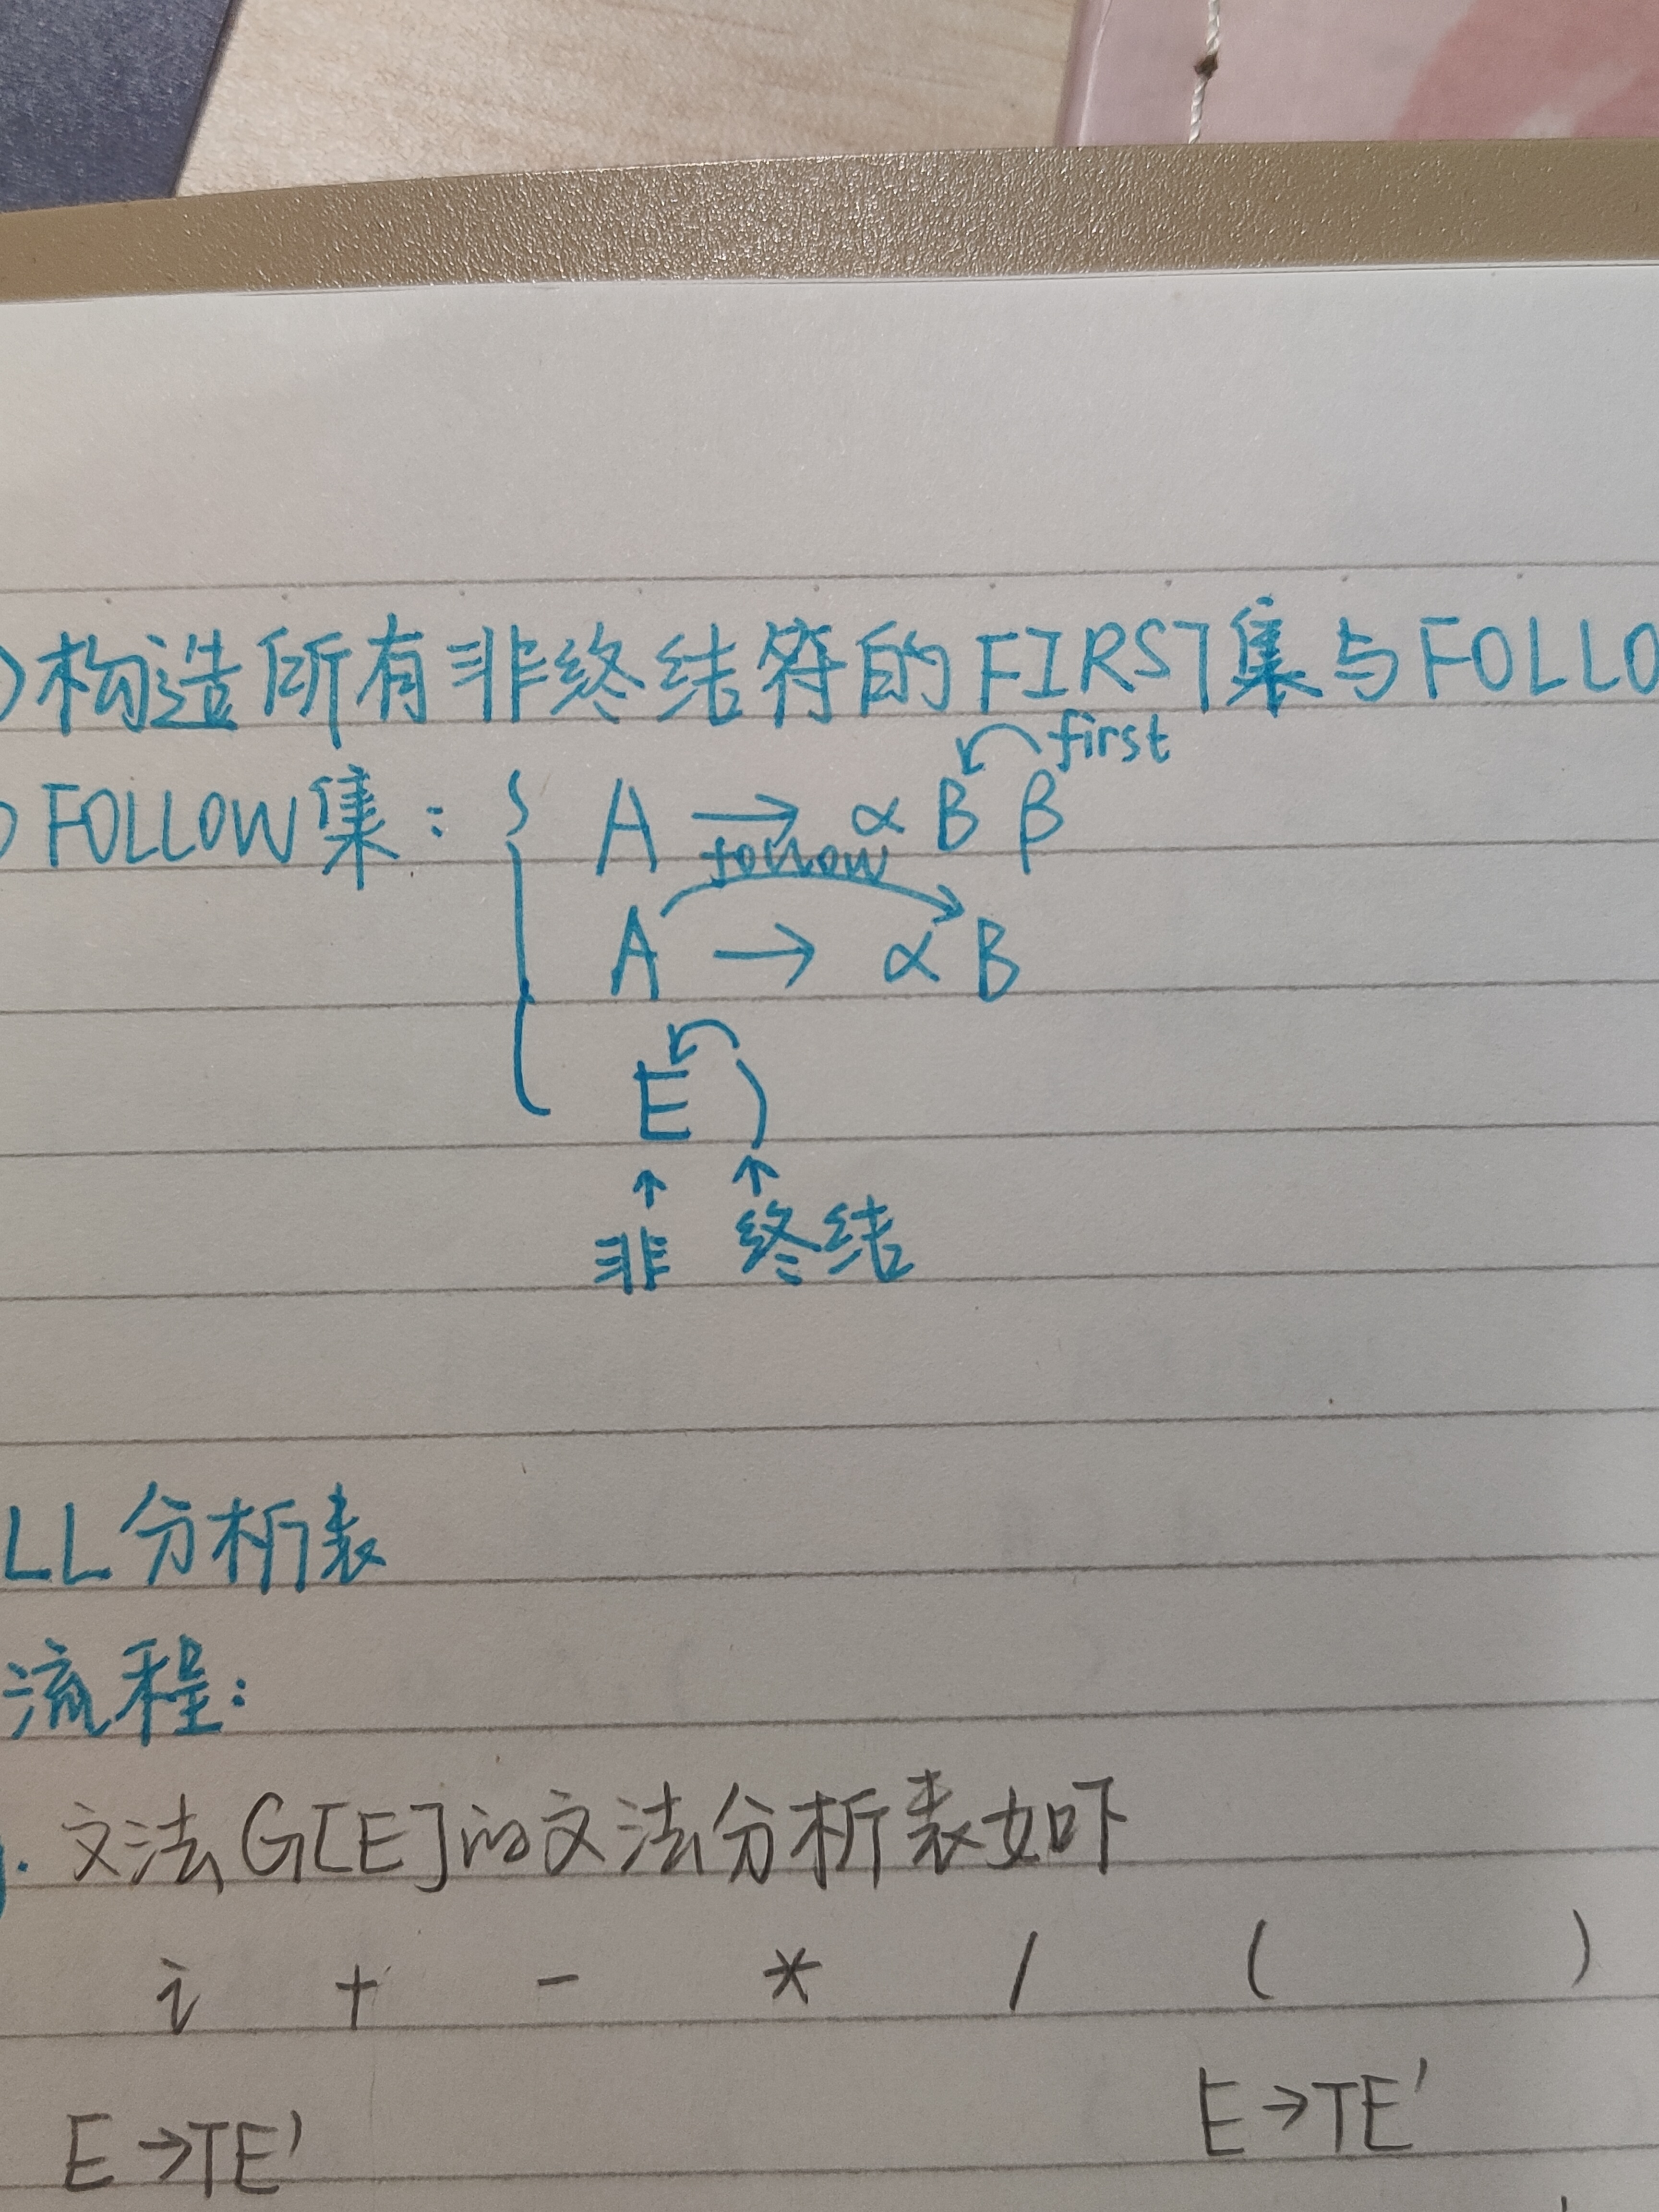 )构造所有非终结符的FIRST集与FOLLO
first
FOLLOW集: { A → α B β
follow
A → α B
E )
↑ ↑
非 终结
LL分析表
流程:
. 文法G[E]的文法分析表如下
i + - * / ( )
E→TE' E→TE'